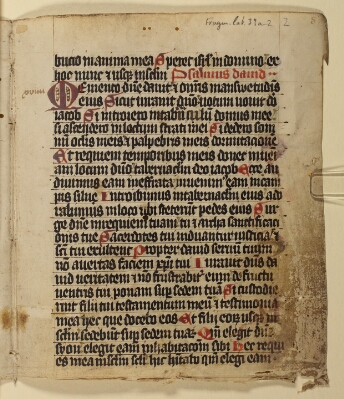 2
bucio in anima mea Speret isrl in domino ex
hoc nunc et usqz in sclm Psalmus dauid
Memento dne dauit et omis mansuetudis
eius Sicut iurauit dno uotum uouit do
iacob Si introiero in tabnclm domus mee
si ascendero in lectum strati mei Si dedero som
nu oclis meis et palpebris meis dormitacione
Et requiem temporibus meis donec inueni
am locum dno tabernaclm deo iacob Ecce au
diuimus eam in effrata inuenim eam in cam
pis silue Introibimus in tabernaclm eius ado
rabimus in loco ubi steterut pedes eius Sur
ge dne in requiem tuam tu et archa sanctificaci
onis tue Sacerdotes tui induant iusticia et
sci tui exultent Propter dauid seruu tuum
no auertas faciem xpi tui Iurauit dns da
uid ueritatem et no frustrabit eum de fructu
uentris tui ponam sup sedem tua Si custodie
rint filii tui testamentum meu et testimonia
mea hec que docebo eos Et filii eorz usqz in
sclm sedebut sup sedem tua Qm elegit dns
syon elegit eam in habitacom sibi Hec requi
es mea in sclm scli hic hitabo qm elegi eam